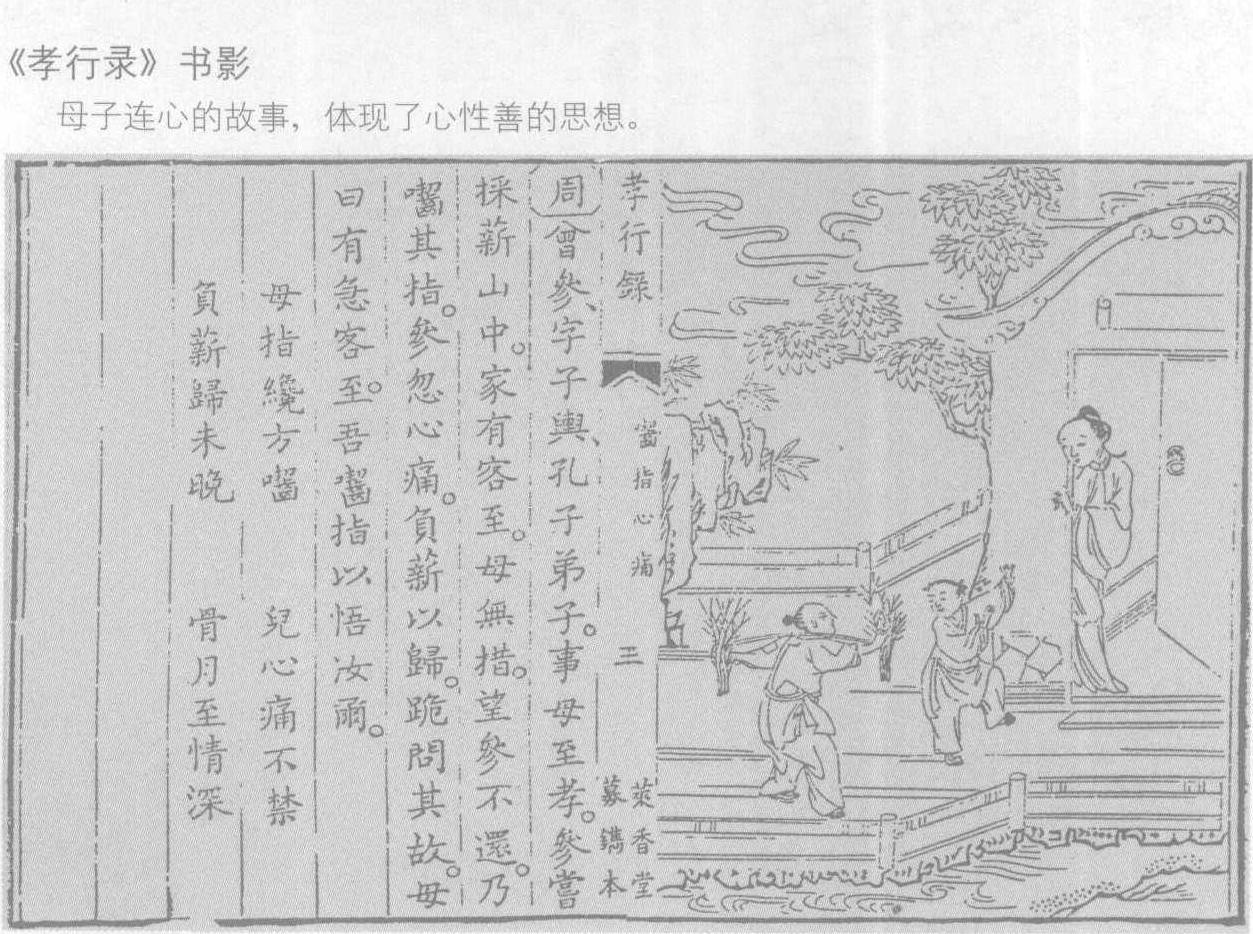 《孝行录》书影
母子连心的故事，体现了心性善的思想。
孝行錄
齧指心痛
三
萊香堂
摹鐫本
周曾參、字子輿、孔子弟子。事母至孝。參嘗
採薪山中。家有客至。母無措。望參不還。乃
嚙其指。參忽心痛。負薪以歸。跪問其故。母
曰有急客至。吾嚙指以悟汝爾。
母指纔方嚙 兒心痛不禁
負薪歸未晚 骨月至情深